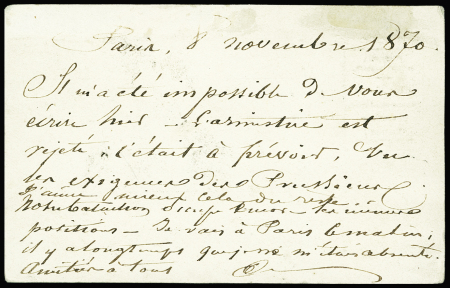 Paris, 8 novembre 1870.
Il m'a été impossible de vous
écrire hier – L'armistice est
rejeté : c'était à prévoir, vu
les exigences des Prussiens
J'aime mieux cela du reste
Notre bataillon occupe encore les mêmes
positions – Je vais à Paris ce matin,
il y a longtemps que je ne m'étais absenté.
Amitiés à tous